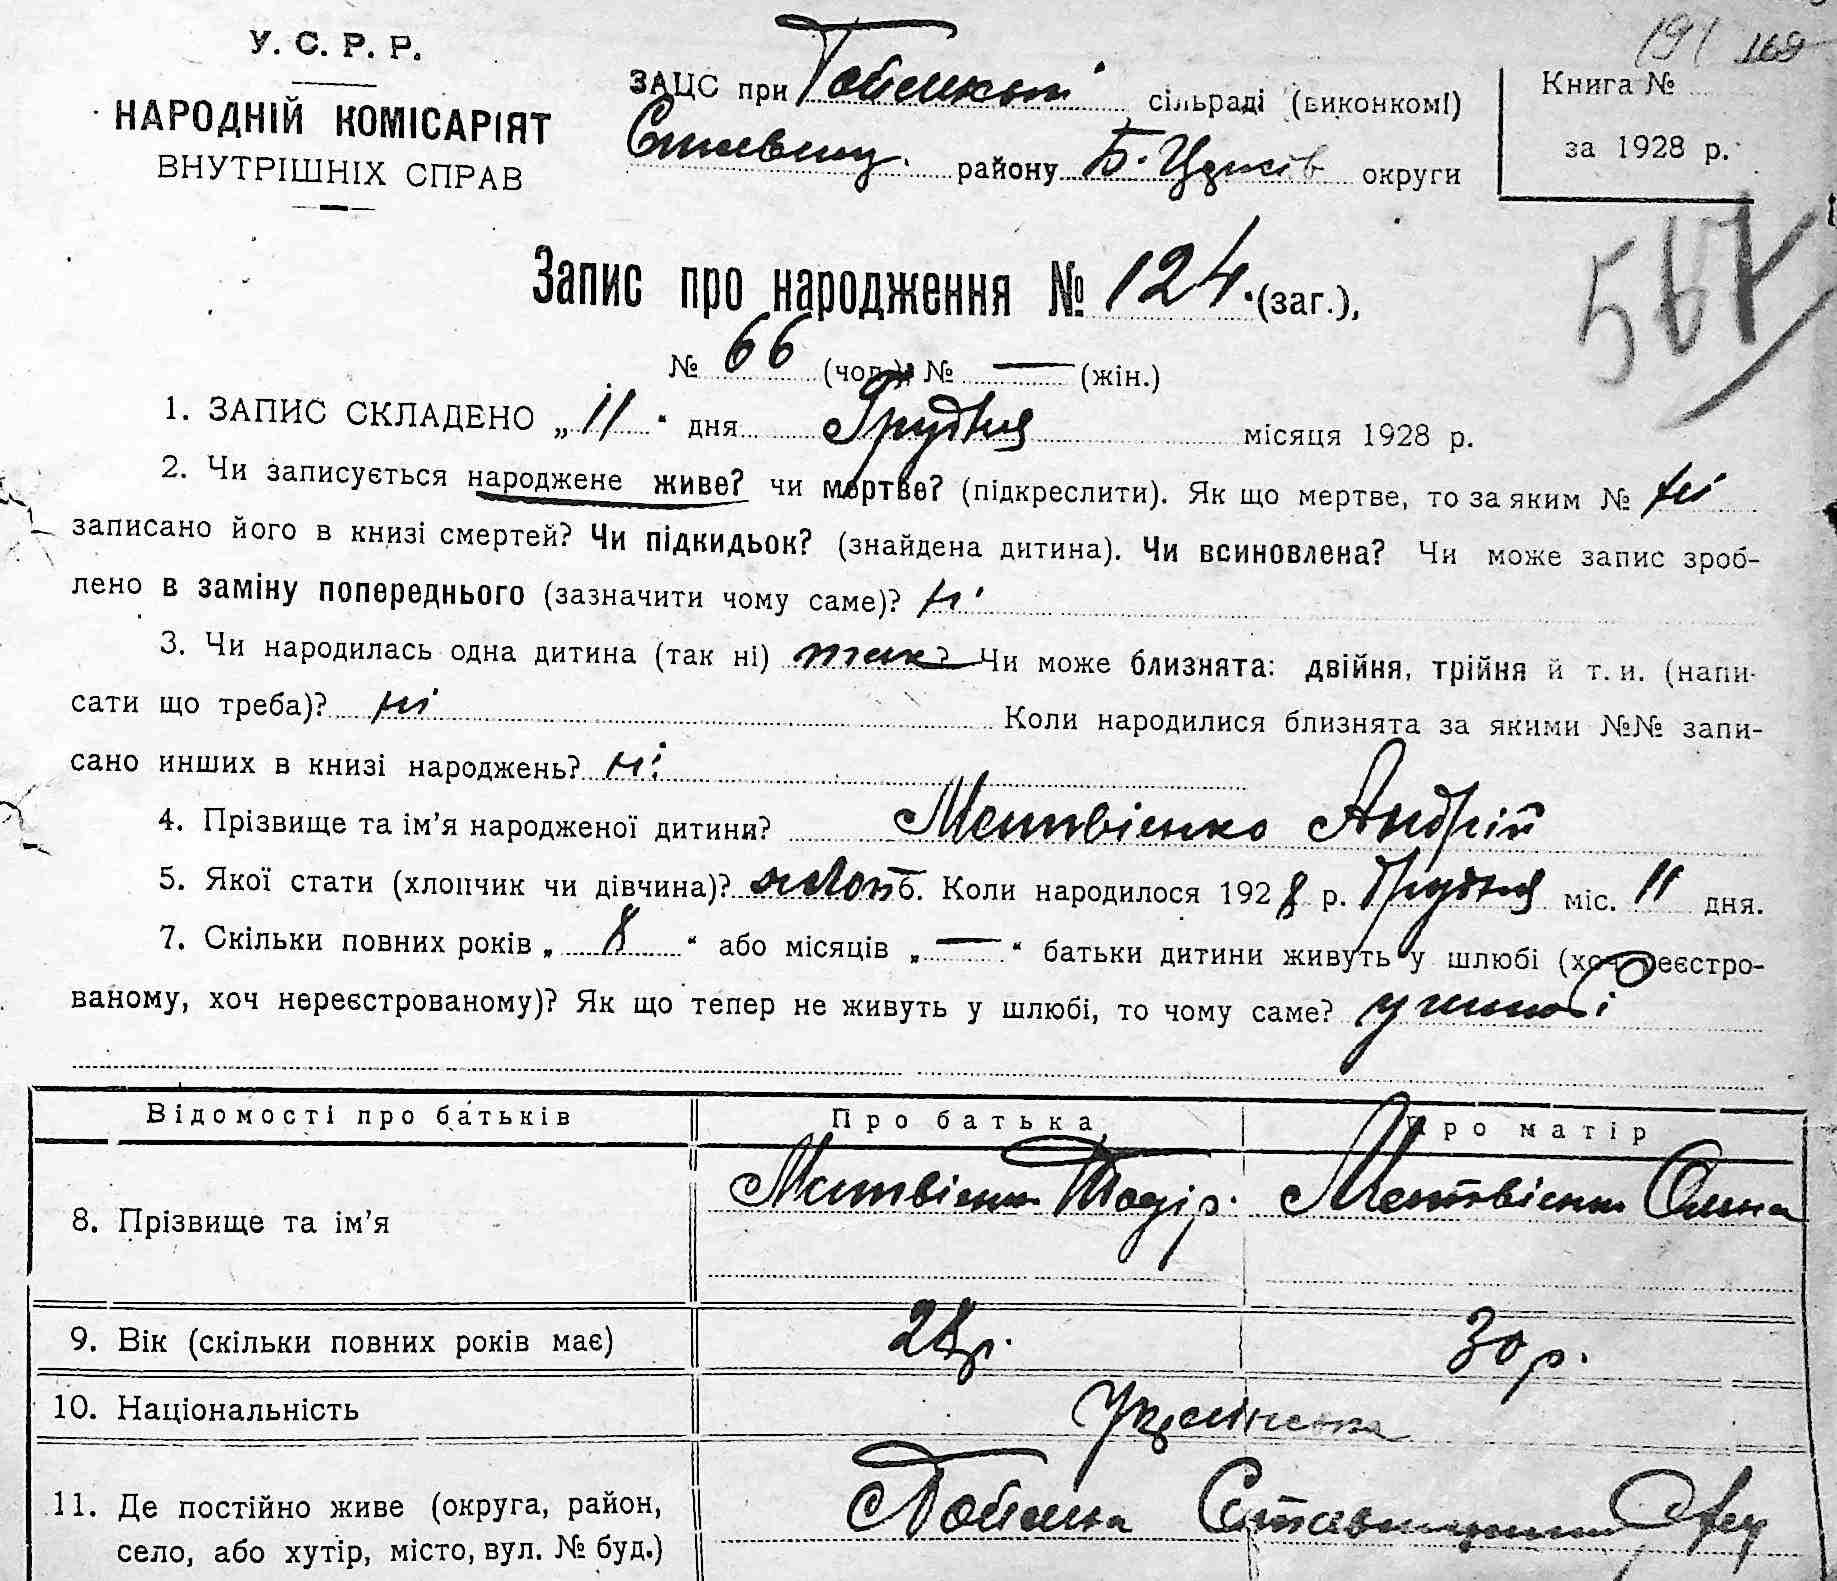 191 169
У. С. Р. Р.
НАРОДНІЙ КОМІСАРІЯТ
ВНУТРІШНІХ СПРАВ
ЗАЦС при сільраді (виконкомі)
Ставищ. району Б-Церків округи
Книга №
за 1928 р.
567
Запис про народження № 124 (заг.),
№ 66 (чол.); № — (жін.)
1. ЗАПИС СКЛАДЕНО „11“ дня Грудня місяця 1928 р.
2. Чи записується народжене живе? чи мертве? (підкреслити). Як що мертве, то за яким № ні
записано його в книзі смертей? Чи підкидьок? (знайдена дитина). Чи всиновлена? Чи може запис зроб-
лено в заміну попереднього (зазначити чому саме)? ні
3. Чи народилась одна дитина (так ні) так? Чи може близнята: двійня, трійня й т. и. (напи-
сати що треба)? ні Коли народилися близнята за якими №№ запи-
сано инших в книзі народжень? ні
4. Прізвище та ім’я народженої дитини? Матвієнко Андрій
5. Якої стати (хлопчик чи дівчина)? хлопч. Коли народилося 1928 р. Грудня міс. 11 дня.
7. Скільки повних років „ 8 “ або місяців „ — “ батьки дитини живуть у шлюбі (хоч реєстро-
ваному, хоч нереєстрованому)? Як що тепер не живуть у шлюбі, то чому саме? у шлюбі
Відомості про батьків Про батька Про матір
8. Прізвище та ім’я Матвієнко Тодір. Матвієнко Олена
9. Вік (скільки повних років має) 28 р. 30 р.
10. Національність Українська
11. Де постійно живе (округа, район,
село, або хутір, місто, вул. № буд.)